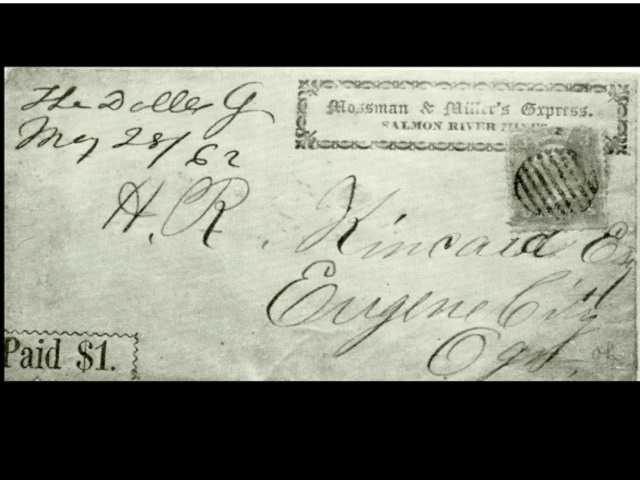 The Dalles O
May 28/62
Mossman & Miller's Express.
SALMON RIVER MINES
H. R. Kincaid Esq
Eugene City
Ogn
Paid $1.